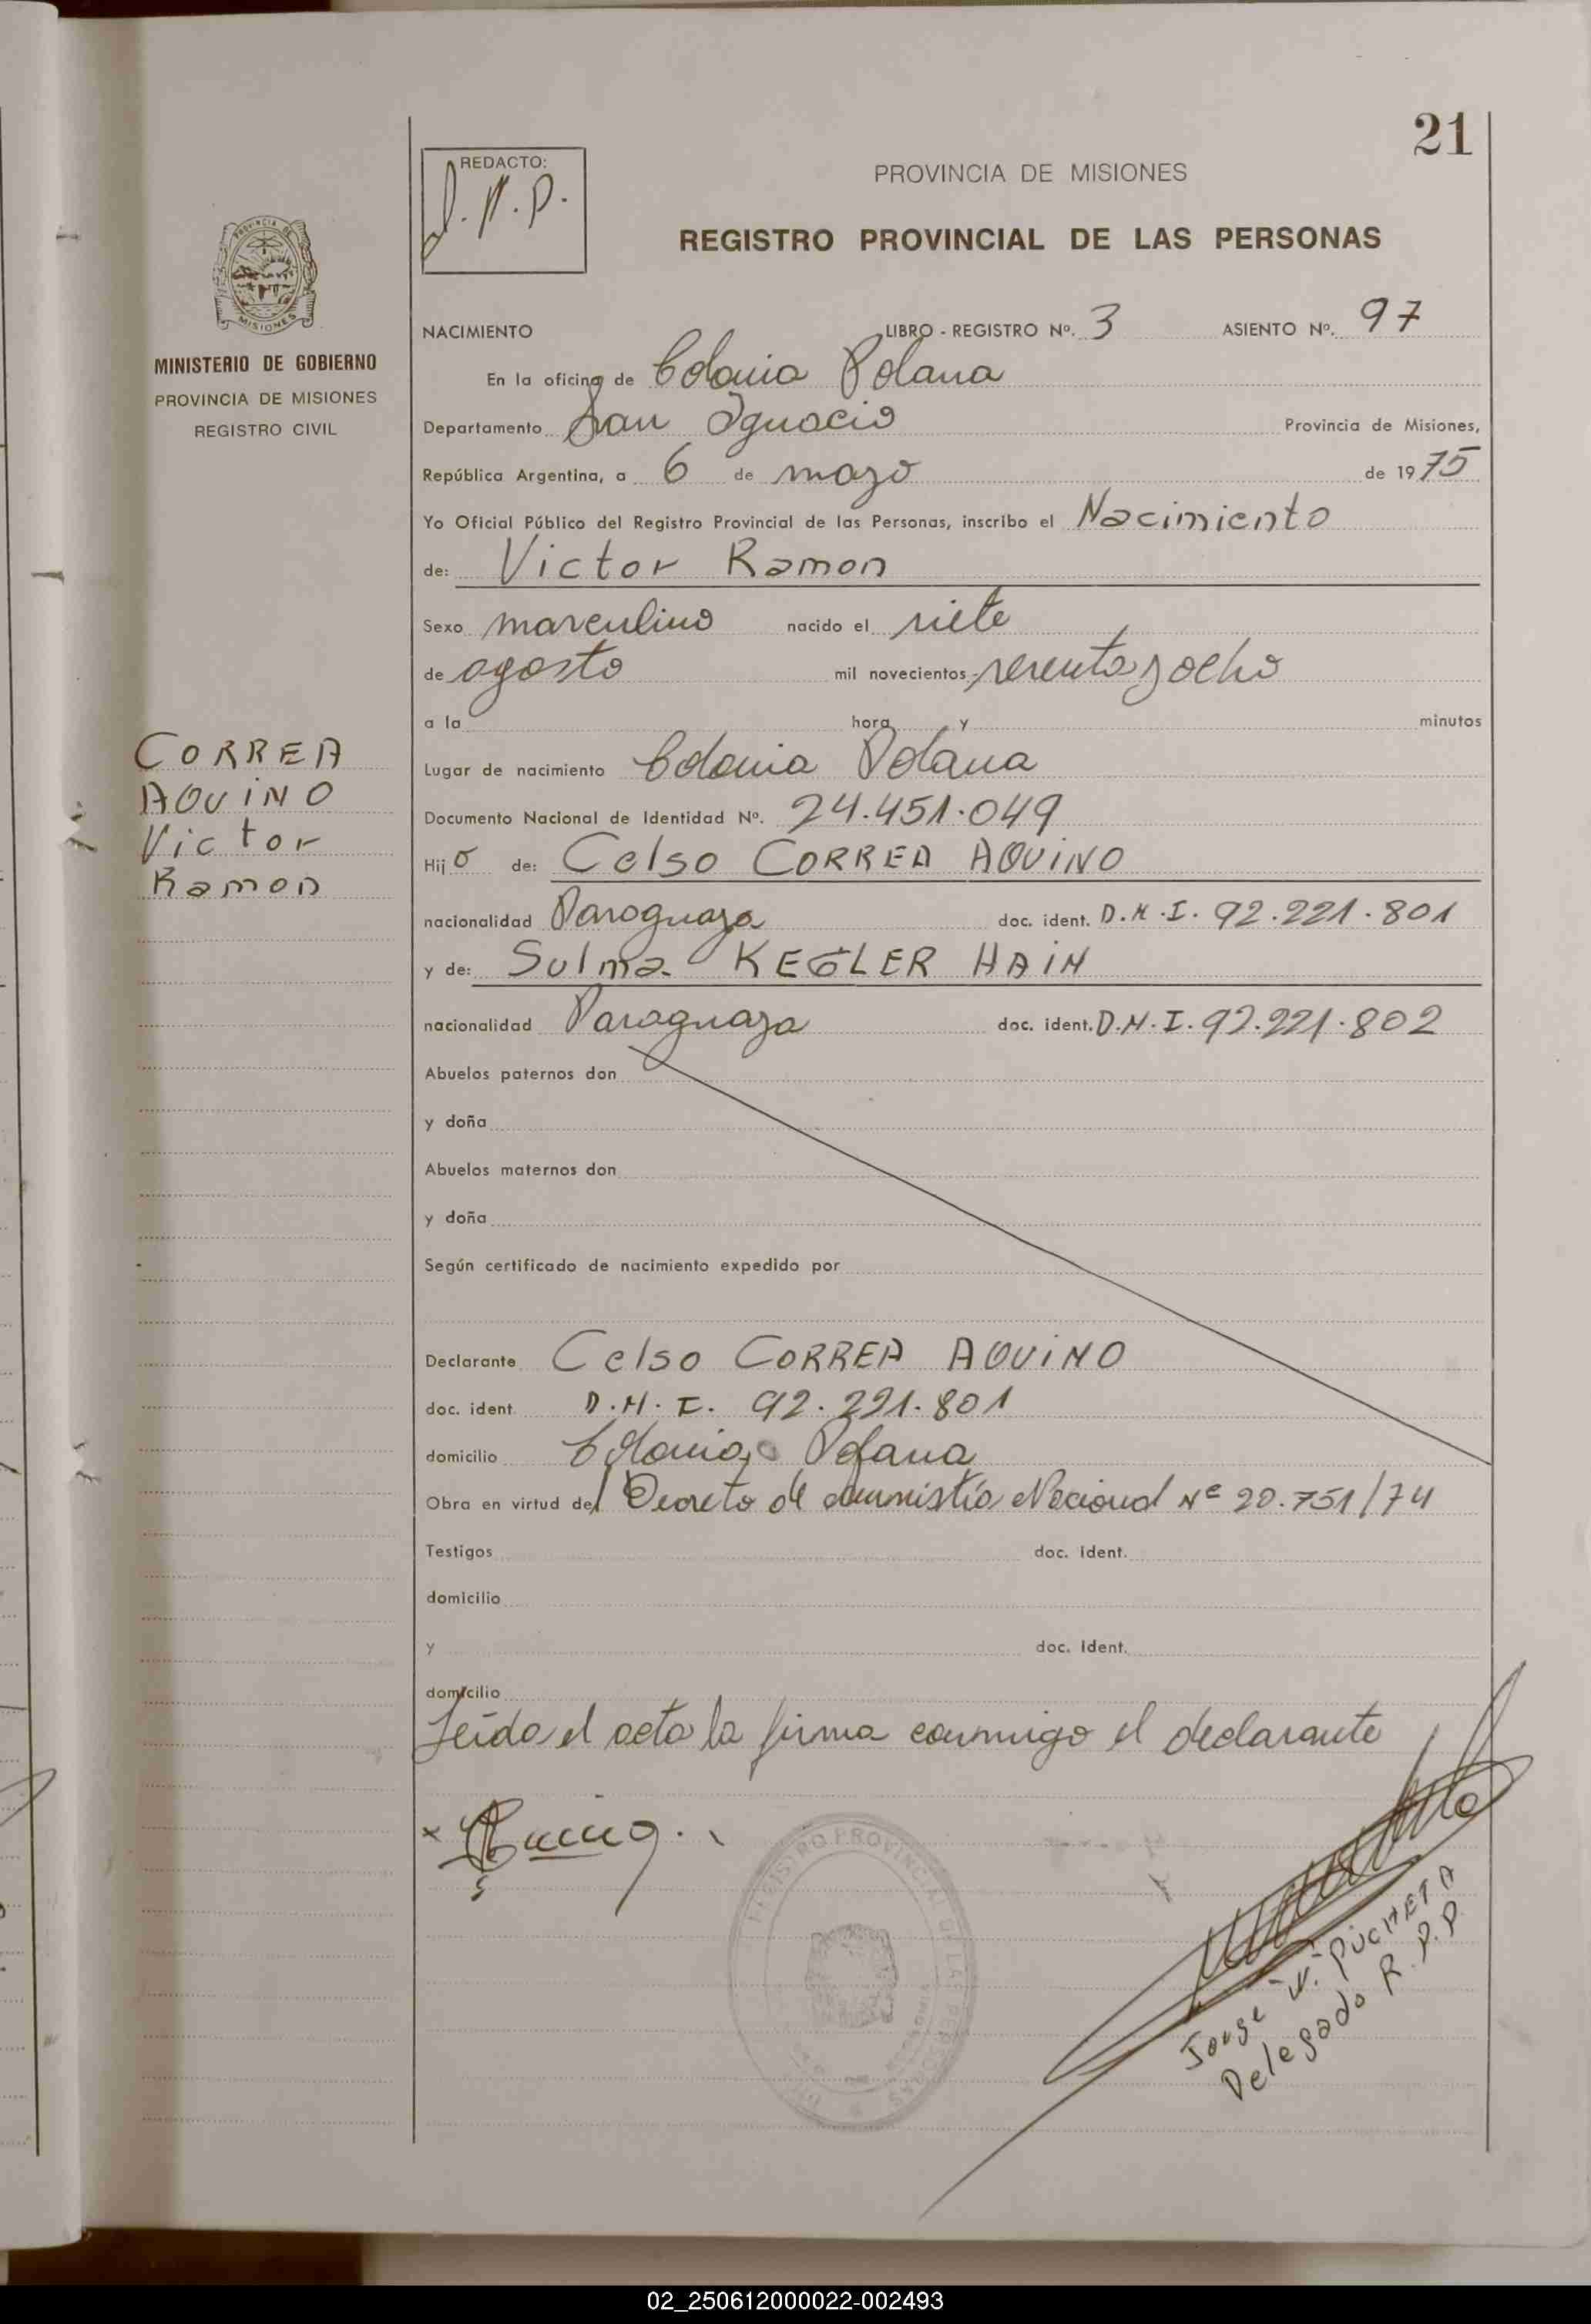 21
REDACTO:
PROVINCIA DE MISIONES
REGISTRO PROVINCIAL DE LAS PERSONAS
PROVINCIA DE
MISIONES
MINISTERIO DE GOBIERNO
PROVINCIA DE MISIONES
REGISTRO CIVIL
NACIMIENTO LIBRO - REGISTRO Nº. 3 ASIENTO Nº. 97
En la oficina de Colonia Polana
Departamento San Ignacio Provincia de Misiones,
República Argentina, a 6 de mayo de 1975
Yo Oficial Público del Registro Provincial de las Personas, inscribo el Nacimiento
de: Victor Ramon
Sexo masculino nacido el siete
de agosto mil novecientos sesenta y ocho
a la hora y minutos
CORREA
AQUINO
Victor
Ramon
Lugar de nacimiento Colonia Polana
Documento Nacional de Identidad Nº. 24.451.049
Hijo de: Celso CORREA AQUINO
nacionalidad Paraguaya doc. ident. D.N.I. 92.221.801
y de: Sulma KEGLER HAIN
nacionalidad Paraguaya doc. ident. D.N.I. 92.221.802
Abuelos paternos don
y doña
Abuelos maternos don
y doña
Según certificado de nacimiento expedido por
Declarante Celso CORREA AQUINO
doc. ident. D.N.I. 92.221.801
domicilio Colonia Polana
Obra en virtud del Decreto de amnistia Nacional Nº 20.751/74
Testigos doc. ident.
domicilio
y doc. ident.
domicilio
Leida el acta la firma conmigo el declarante
REGISTRO PROVINCIAL DE LAS PERSONAS
Jorge V. PUCHETA
Delegado R.P.P
02_250612000022-002493